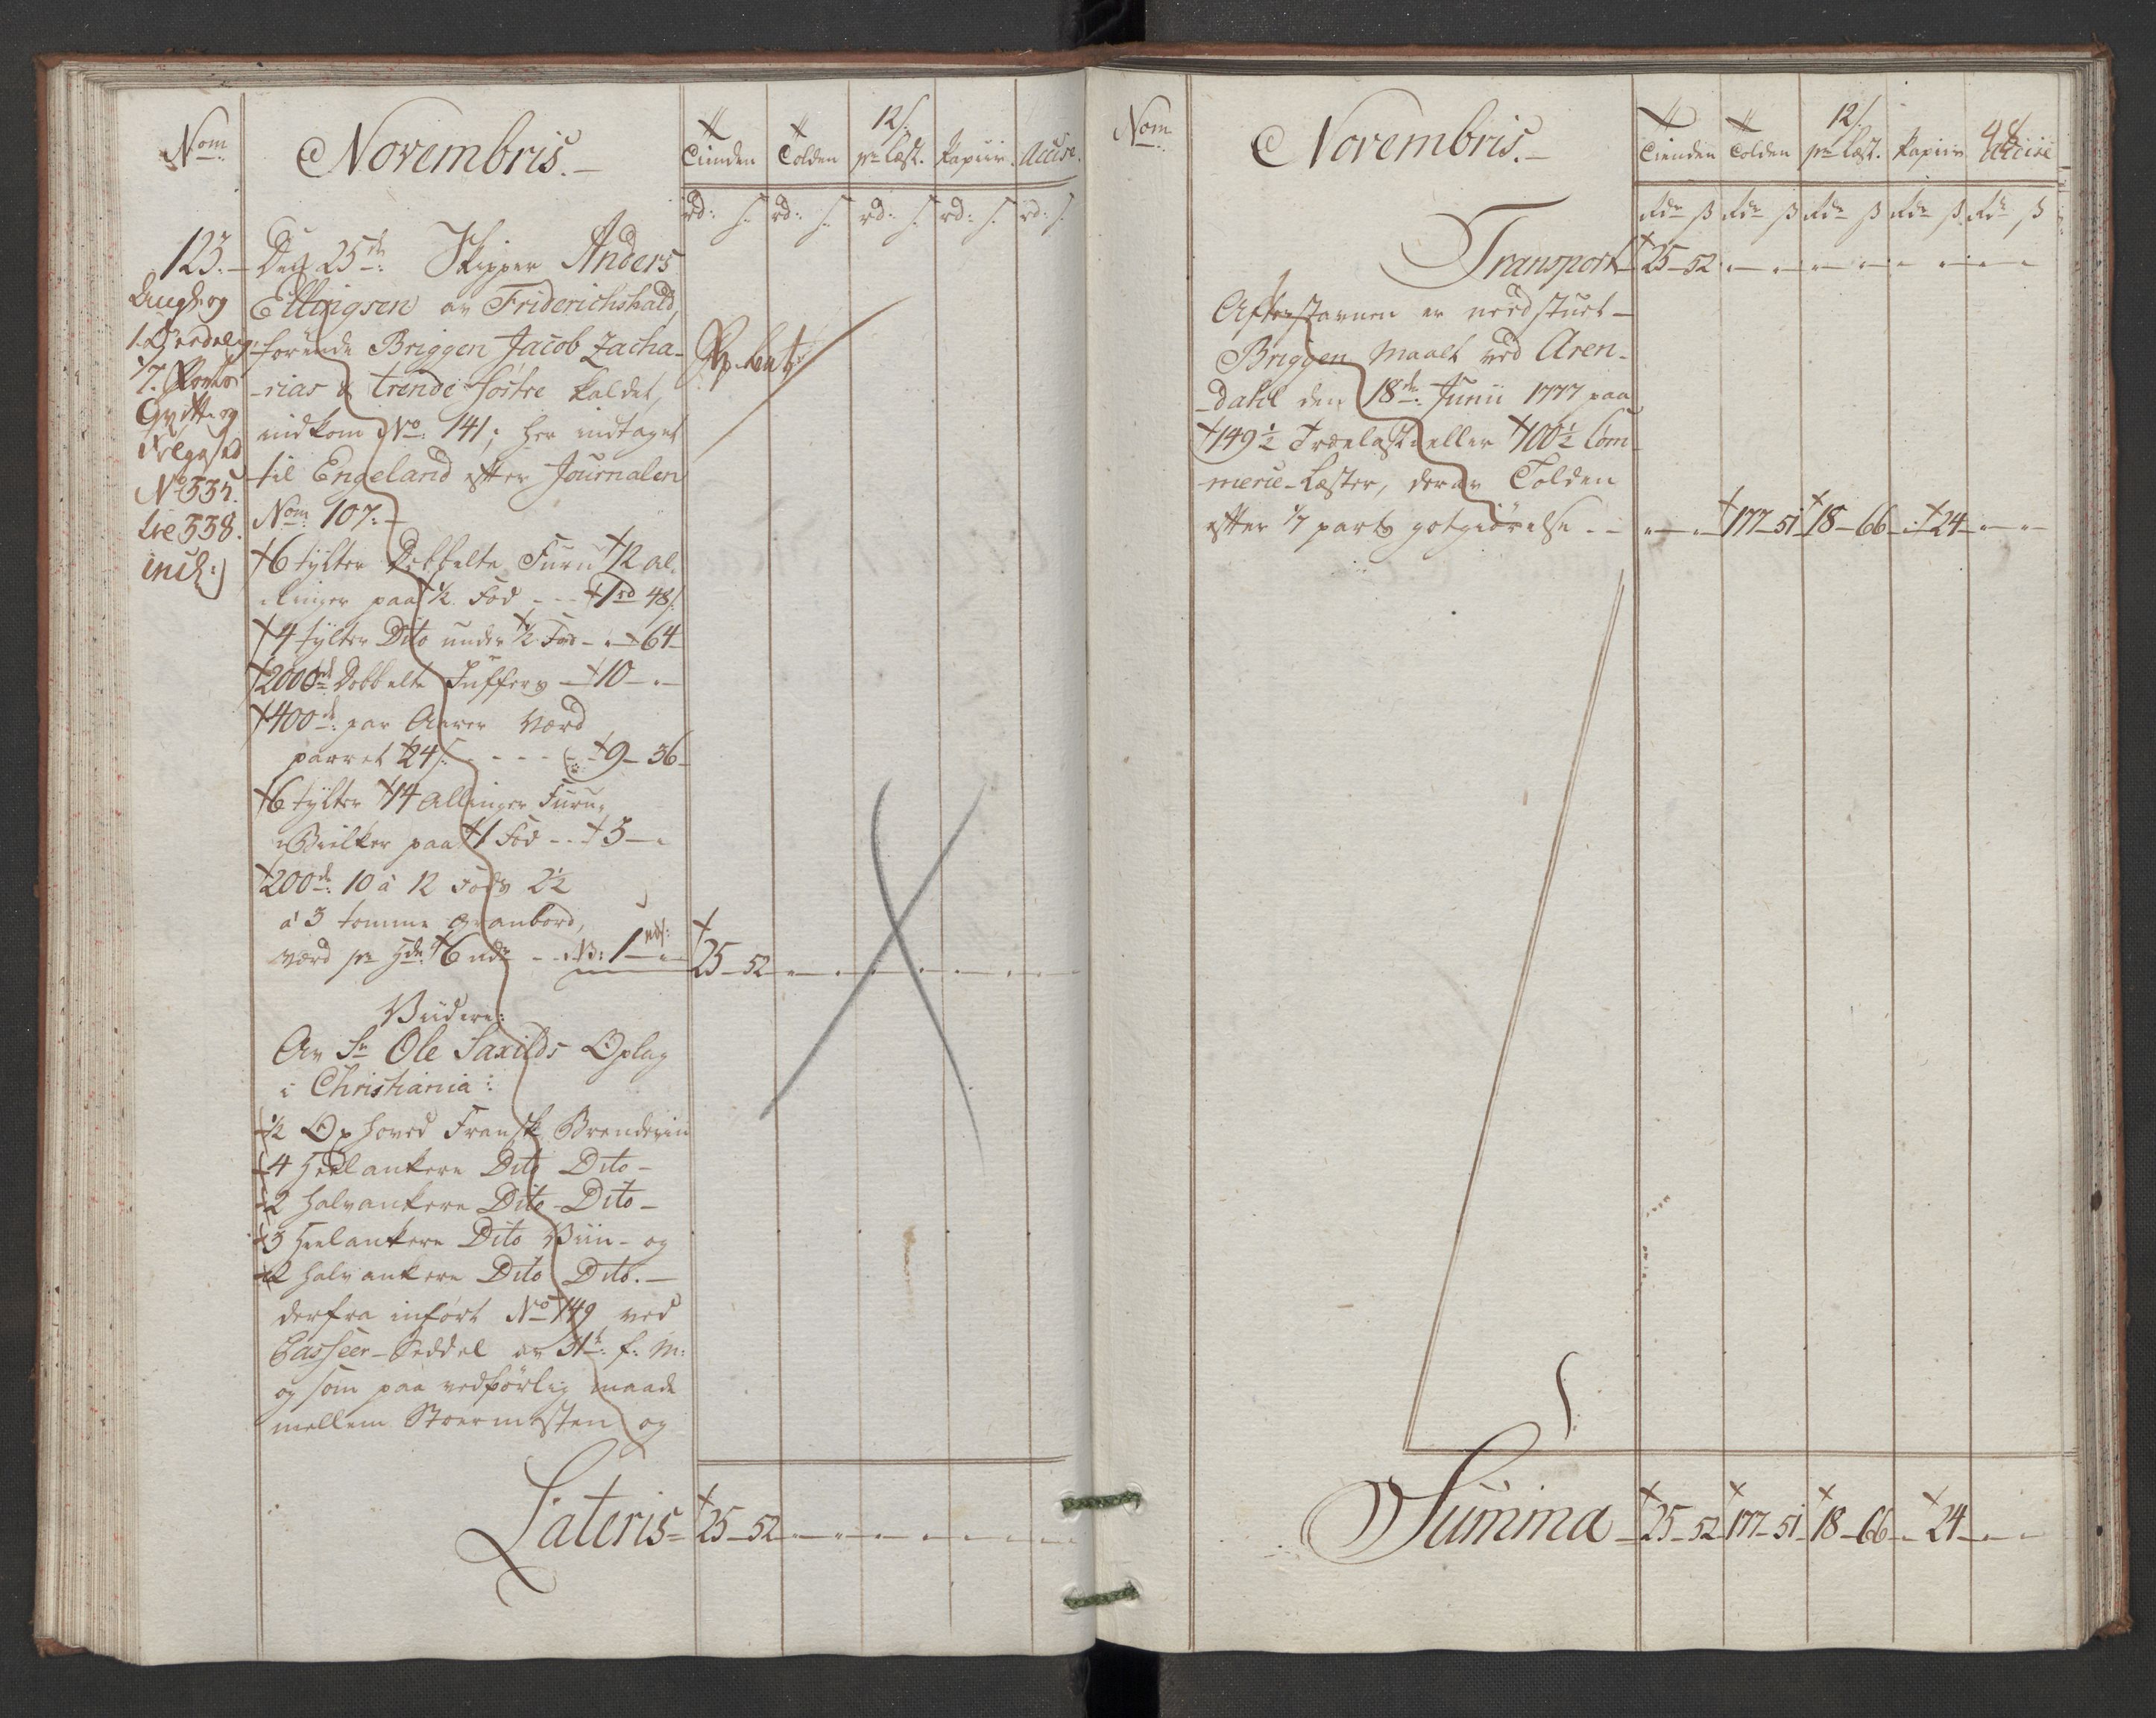 Nom
Novembris.
Tiinden Tolden 12 s. pr Læst. Papiir. Accise.
rd: s. rd: s. rd: s. rd: s. rd: s.
123.
Langs. og
1. Verdslig,
1/7. Porto
Qvitt. og
følgesed
No 535.
tre 538.
incl:)
Den 25de: Skipper Anders
Ellingsen av Friderichshald,
førende Briggen Jacob Zacha-
rias & trende Søstre kaldet,
indkom No: 141; her indtaget
til Engeland efter Journalen
Nom 107:
6 tylter Dobbelte Furu 12 al-
linger paa 1/2 Fod - - 1 rd 48 s.
4 tylter Dito under 1/2 Fod - . - 64 -
2000de Dobbelte Juffers - 10 - . -
400de: par Aarer værd
parret 24 s: - - - - 9 - 36 -
6 tylter 14 allinger Furu-
Bielker paa 1 Fod - - 3 - .
200de: 10 à 12 Fods 2 1/2
à 3 tomme Granbord,
værd pr Hde: 6 rdr - - 1 - . - 25 - 52
Viidere:
Av Sr Ole Saxilds Oplag
i Christiania:
1/2 Oxhoved Fransk Brendeviin
4 Heelankere Dito Dito -
2 halvankere Dito Dito -
3 Heelankere Dito Viin - og
2 halvankere Dito Dito. -
derfra inført No 149 ved
Passeer-Seddel av 31te: f: M:
og som paa vedbørlig maade
mellem Stoermasten og
Lateris - 25 - 52
Nom
Novembris. -
Tienden Tolden 12 s. pr Læst. Papiir 48 Accise
Rdr ß Rdr ß Rdr ß Rdr ß Rdr ß
Transport 25 - 52
Afterstavnen er nedstuet -
Briggen maalt ved Aren-
dahl den 18de: Junii 1777 paa
149 1/2 Trælast eller 100 1/2 Com-
merce-Læster, derav Tolden
efter 1/7 parts godgiørelse - - 177 - 51 18 - 66 - 24
Summa 25 - 52 177 - 51 18 - 66 - 24